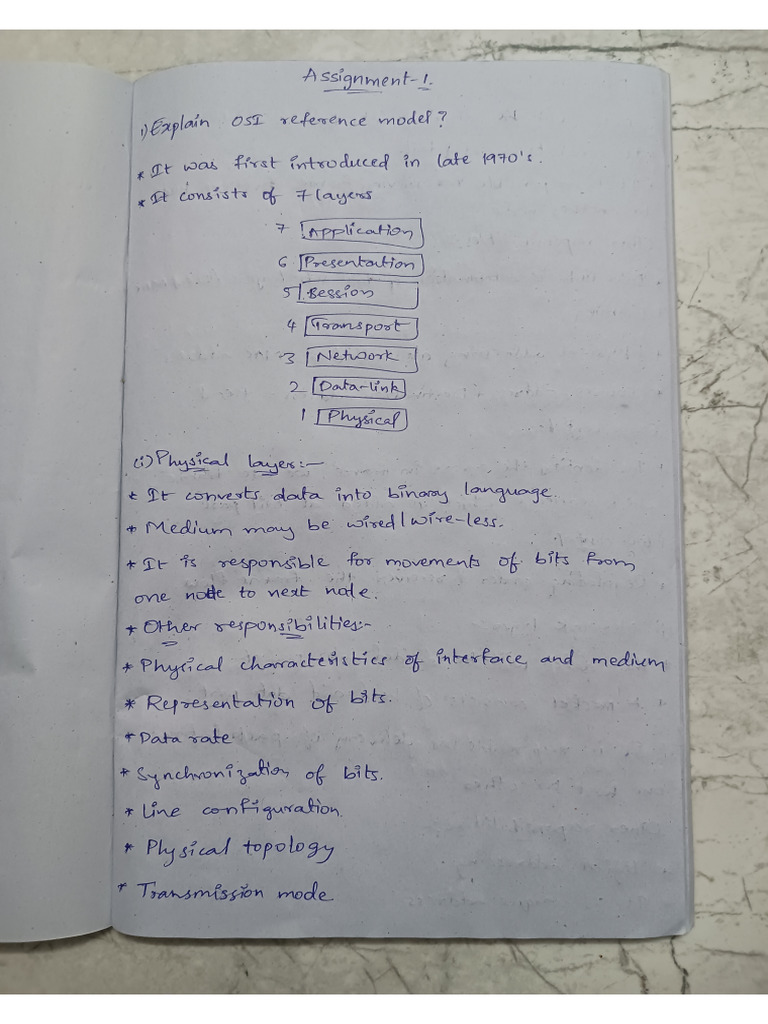 Assignment-1.
1) Explain OSI reference model?
* It was first introduced in late 1970's.
* It consists of 7 layers
7 Application
6 Presentation
5 Session
4 Transport
3 Network
2 Data-link
1 Physical
(i) Physical layer:-
* It converts data into binary language.
* Medium may be wired/wire-less.
* It is responsible for movements of bits from
one node to next node.
* Other responsibilities:-
* Physical characteristics of interface and medium
* Representation of bits.
* Data rate
* Synchronization of bits.
* Line configuration.
* Physical topology
* Transmission mode